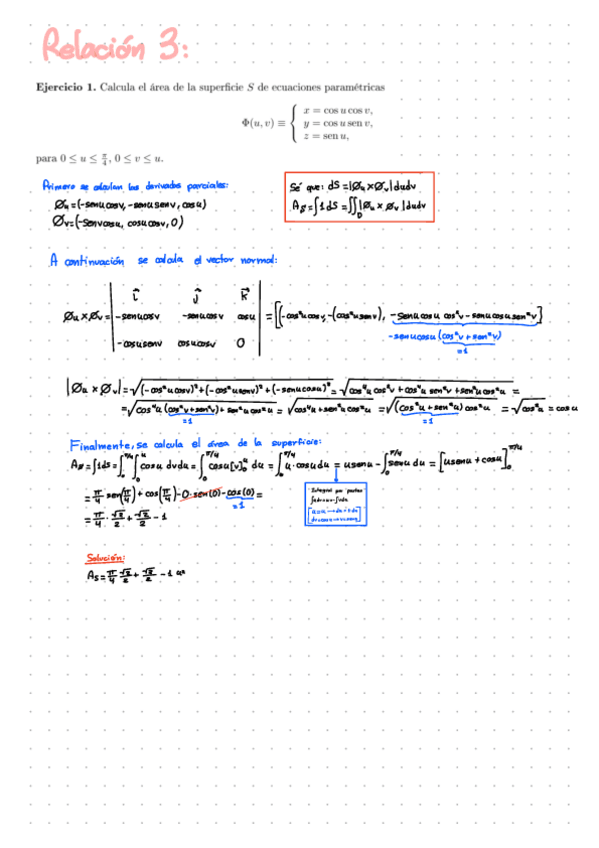 Relación 3:
Ejercicio 1. Calcula el área de la superficie S de ecuaciones paramétricas
Φ(u, v) ≡ { x = cos u cos v,
y = cos u sen v,
z = sen u,
para 0 ≤ u ≤ π/4, 0 ≤ v ≤ u.
Primero se calculan las derivadas parciales:
Øu=(-senucosv, -senusenv, cosu)
Øv=(-senvcosu, cosucosv, 0)
Sé que: dS=|Øu×Øv|dudv
As=∫1dS=∬D|Øu×Øv|dudv
A continuación se calcula el vector normal:
i j k
Øu×Øv= | -senucosv -senucosv cosu | = [(-cos²ucosv, -(cos²usenv), -senucosu cos²v-senucosusen²v]
-cosusenv cosucosv 0
-senucosu(cos²v+sen²v)
=1
|Øu×Øv|=√((-cos²ucosv)²+(-cos²usenv)²+(-senucosu)²)=√(cos⁴ucos²v+cos⁴usen²v+sen²ucos²u) =
=√(cos⁴u(cos²v+sen²v)+sen²ucos²u) = √(cos⁴u+sen²ucos²u) =√((cos²u+sen²u)cos²u) = √cos²u = cosu
=1 =1
Finalmente, se calcula el área de la superficie:
As=∫1dS=∫₀^π/4∫₀^u cosu dvdu=∫₀^π/4 cosu[v]₀^u du=∫₀^π/4 u·cosudu=usenu-∫₀^π/4 senudu=[usenu+cosu]₀^π/4
=π/4 sen(π/4)+cos(π/4)-0·sen(0)-cos(0)=
=1
Integral por partes
=π/4·√2/2+√2/2-1
Solución:
As=π/4 √2/2+√2/2-1 u²